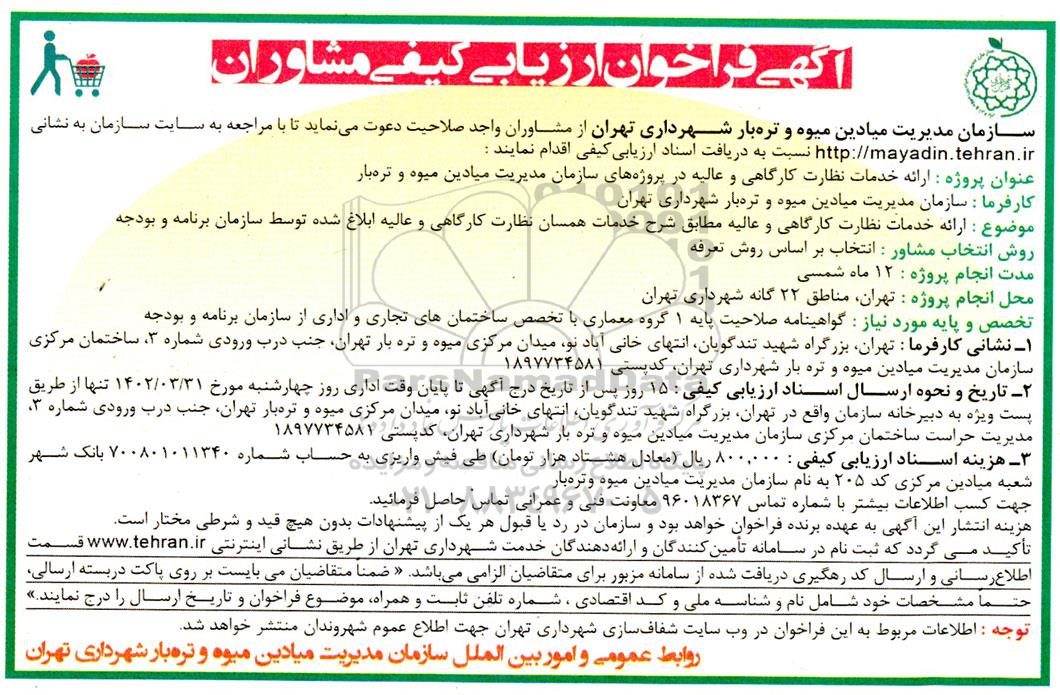 آگهی فراخوان ارزیابی کیفی مشاوران
سازمان مدیریت میادین میوه و تره‌بار شهرداری تهران از مشاوران واجد صلاحیت دعوت می‌نماید تا با مراجعه به سایت سازمان به نشانی
http://mayadin.tehran.ir نسبت به دریافت اسناد ارزیابی‌کیفی اقدام نمایند :
عنوان پروژه : ارائه خدمات نظارت کارگاهی و عالیه در پروژه‌های سازمان مدیریت میادین میوه و تره‌بار
کارفرما : سازمان مدیریت میادین میوه و تره‌بار شهرداری تهران
موضوع : ارائه خدمات نظارت کارگاهی و عالیه مطابق شرح خدمات همسان نظارت کارگاهی و عالیه ابلاغ شده توسط سازمان برنامه و بودجه
روش انتخاب مشاور : انتخاب بر اساس روش تعرفه
مدت انجام پروژه : ۱۲ ماه شمسی
محل انجام پروژه : تهران، مناطق ۲۲ گانه شهرداری تهران
تخصص و پایه مورد نیاز : گواهینامه صلاحیت پایه ۱ گروه معماری با تخصص ساختمان های تجاری و اداری از سازمان برنامه و بودجه
۱ـ نشانی کارفرما : تهران، بزرگراه شهید تندگویان، انتهای خانی آباد نو، میدان مرکزی میوه و تره بار تهران، جنب درب ورودی شماره ۳، ساختمان مرکزی
سازمان مدیریت میادین میوه و تره بار شهرداری تهران، کدپستی ۱۸۹۷۷۳۴۵۸۱
۲ـ تاریخ و نحوه ارسال اسناد ارزیابی کیفی : ۱۵ روز پس از تاریخ درج آگهی تا پایان وقت اداری روز چهارشنبه مورخ ۱۴۰۲/۰۳/۳۱ تنها از طریق
پست ویژه به دبیرخانه سازمان واقع در تهران، بزرگراه شهید تندگویان، انتهای خانی‌آباد نو، میدان مرکزی میوه و تره‌بار تهران، جنب درب ورودی شماره ۳،
مدیریت حراست ساختمان مرکزی سازمان مدیریت میادین میوه و تره بار شهرداری تهران، کدپستی ۱۸۹۷۷۳۴۵۸۱
۳ـ هزینه اسناد ارزیابی کیفی : ۸۰۰,۰۰۰ ریال (معادل هشتاد هزار تومان) طی فیش واریزی به حساب شماره ۷۰۰۸۰۱۰۱۱۳۴۰ بانک شهر
شعبه میادین مرکزی کد ۲۰۵ به نام سازمان مدیریت میادین میوه وتره‌بار
جهت کسب اطلاعات بیشتر با شماره تماس ۹۶۰۱۸۳۶۷ معاونت فنی و عمرانی تماس حاصل فرمائید.
هزینه انتشار این آگهی به عهده برنده فراخوان خواهد بود و سازمان در رد یا قبول هر یک از پیشنهادات بدون هیچ قید و شرطی مختار است.
تأکید می گردد که ثبت نام در سامانه تأمین‌کنندگان و ارائه‌دهندگان خدمت شهرداری تهران از طریق نشانی اینترنتی www.tehran.ir قسمت
اطلاع‌رسانی و ارسال کد رهگیری دریافت شده از سامانه مزبور برای متقاضیان الزامی می‌باشد. « ضمناً متقاضیان می بایست بر روی پاکت دربسته ارسالی،
حتماً مشخصات خود شامل نام و شناسه ملی و کد اقتصادی ، شماره تلفن ثابت و همراه، موضوع فراخوان و تاریخ ارسال را درج نمایند.»
توجه : اطلاعات مربوط به این فراخوان در وب سایت شفاف‌سازی شهرداری تهران جهت اطلاع عموم شهروندان منتشر خواهد شد.
روابط عمومی و امور بین الملل سازمان مدیریت میادین میوه و تره‌بار شهرداری تهران